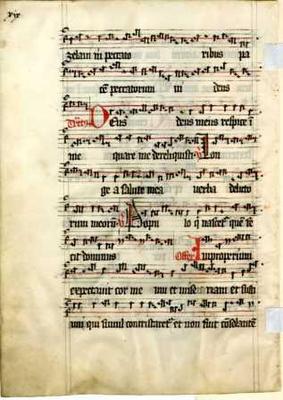 xix
zelaui in peccato ribus pa
cē peccatorum ui dens
Deus deus meus respice ī
me quare me dereliquisti Lon
ge a salute mea uerba delicto
rum meorū Popu lo q nascet' quē fe
cit dominus Off Improperium
expectauit cor me um et mise riam et susti
nui qui simul contristaret' et non fuit cōsolantē